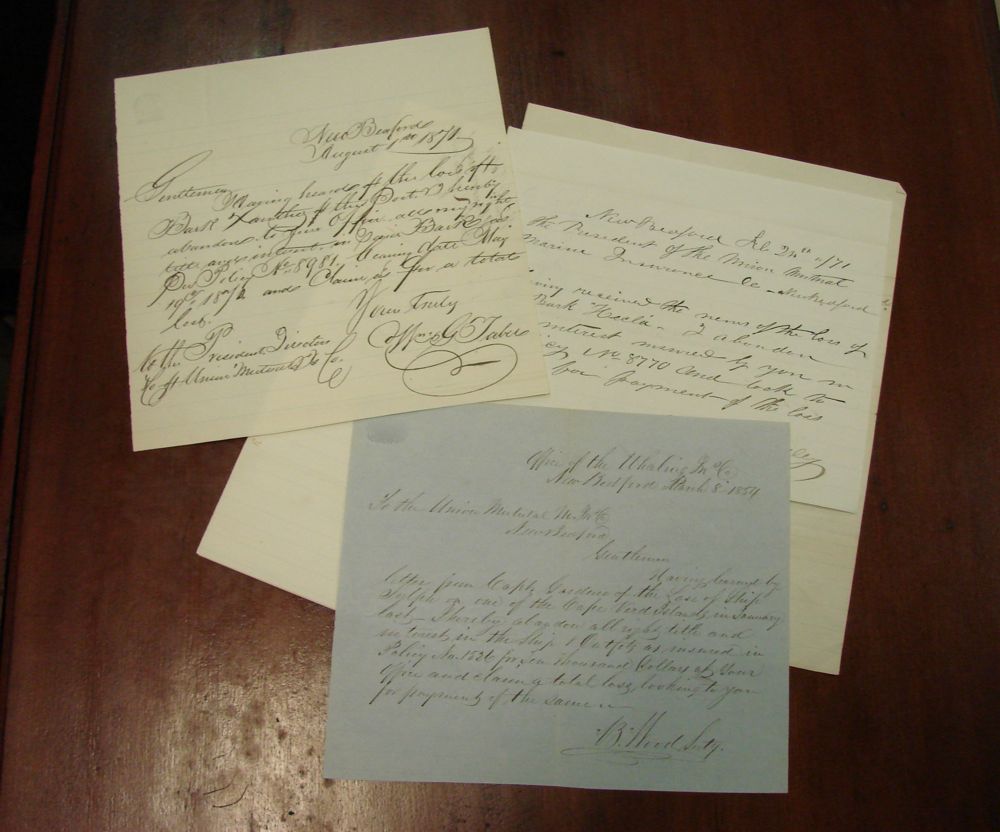 New Bedford
August 1st 1871.
Gentlemen
Having heard of the loss of
Bark Xantho of this Port I hereby
abandon to your Office all my right
title and interest in said Bark as
Per Policy No 8981, bearing date May
19th 1870 and Claim as for a total
loss.
Yours Truly
Wm G Taber
To the President Directors
Co of Union Mutual Co.
New Bedford Feb 24th 1871
the President of the Union Mutual
Marine Insurance Co - New Bedford
received the news of the loss of
Bark Hecla - I abandon
interest insured by you in
No 8770 and look to
for payment of the loss
Office of the Whaling Ins Co
New Bedford March 8 1854
To the Union Mutual M. Ins Co
New Bedford
Gentlemen
Having learned by
letter from Capt. Gardner of the Loss of Ship
Sylph on one of the Cape Verd Islands in January
last I hereby abandon all right title and
interest in the Ship & Outfits as insured in
Policy No. 1526 for ten thousand Dollars at your
Office and claim a total loss, looking to you
for payment of the same
B. Wood Secty.